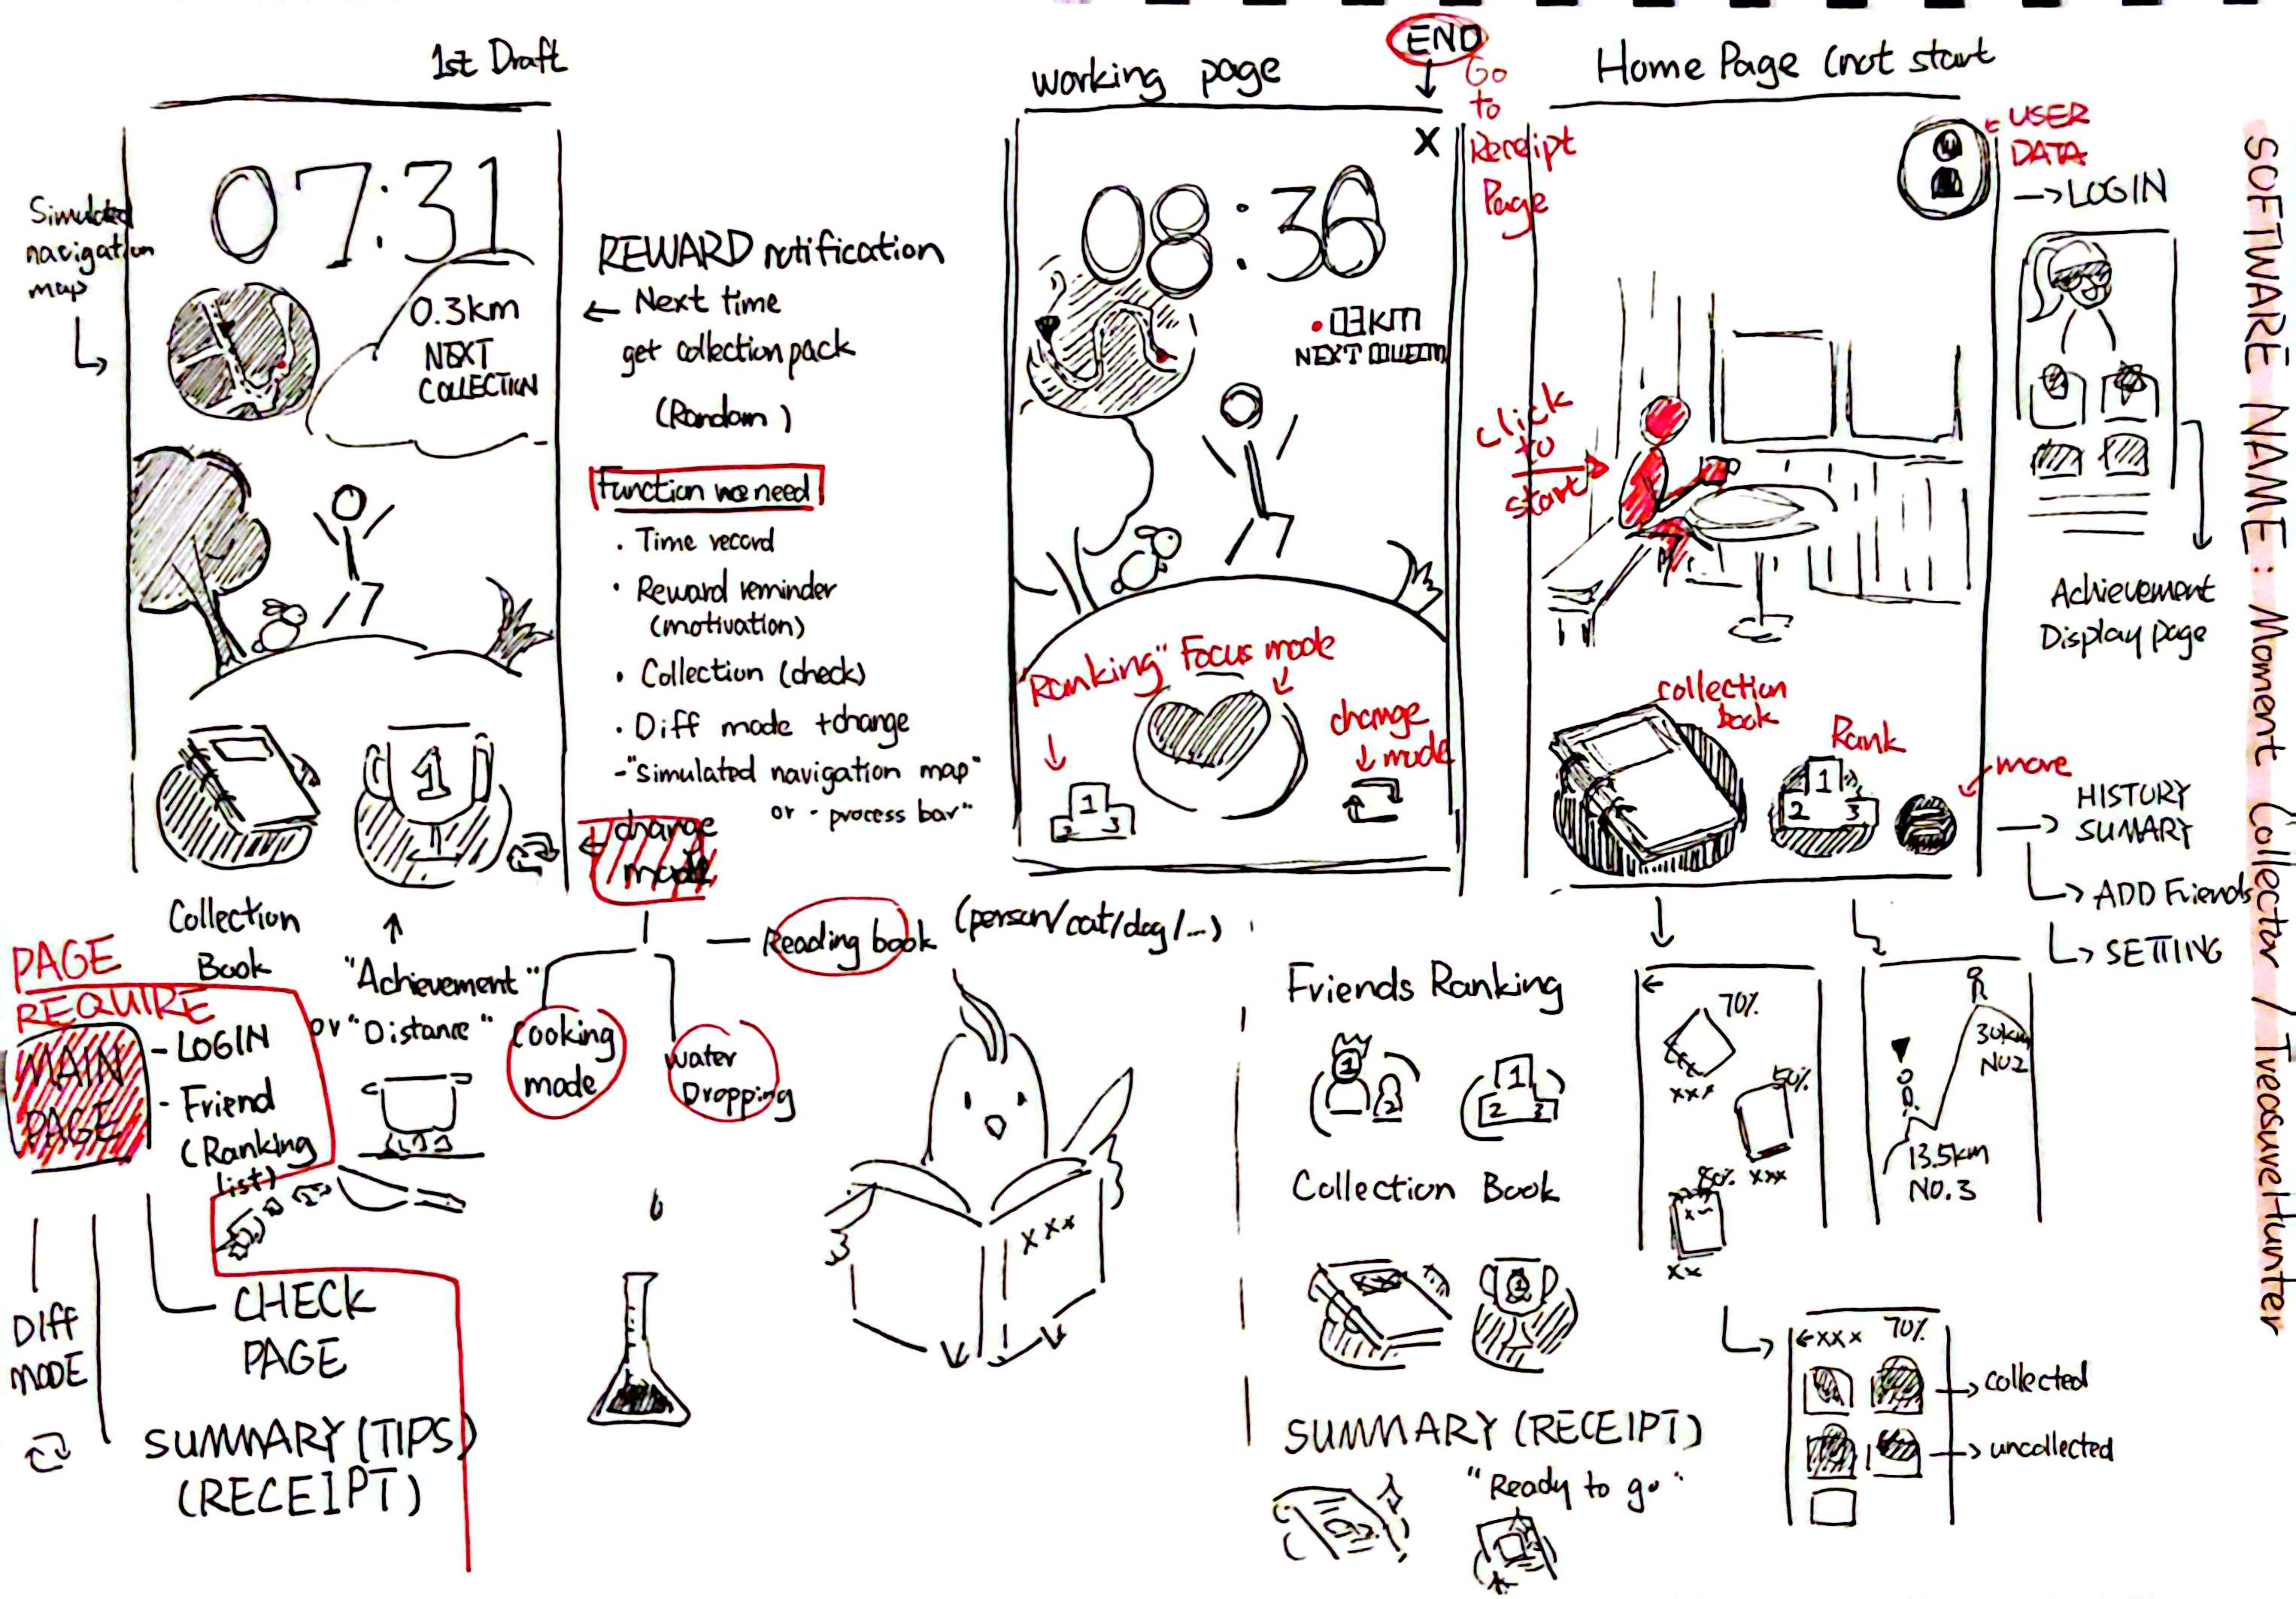 1st Draft
Simulated
navigation
map
07:31
0.3km
NEXT
COLLECTION
REWARD notification
← Next time
get collection pack
(Random)
Function we need
· Time record
· Reward reminder
(motivation)
· Collection (check)
· Diff mode + change
-"Simulated navigation map"
or - process bar"
change
mode
1
Collection
Book
"Achievement"
or "Distance"
Cooking
mode
water
Dropping
— Reading book (person/cat/dog/...)
xxx
PAGE
REQUIRE
MAIN
PAGE
- LOGIN
- Friend
(Ranking
list)
DIFF
MODE
CHECK
PAGE
SUMMARY (TIPS)
(RECEIPT)
working page
END
Go
to
Receipt
Page
X
08:36
03KM
NEXT
Ranking"
Focus mode
change
mode
1
2 3
Home Page (not start
USER
DATA
→ LOGIN
click
to
start
Achievement
Display page
collection
book
Rank
1
2 3
more
HISTORY
SUMARY
→ ADD Friends
→ SETTING
Friends Ranking
1
2
1
2 3
Collection Book
xx
1
SUMMARY (RECEIPT)
"Ready to go"
←
70%
xxx
50%
xxx
80%
xx
30km
NO2
13.5km
NO.3
←xxx 70%
→ collected
→ uncollected
SOFTWARE NAME: Moment Collector / TreasureHunter